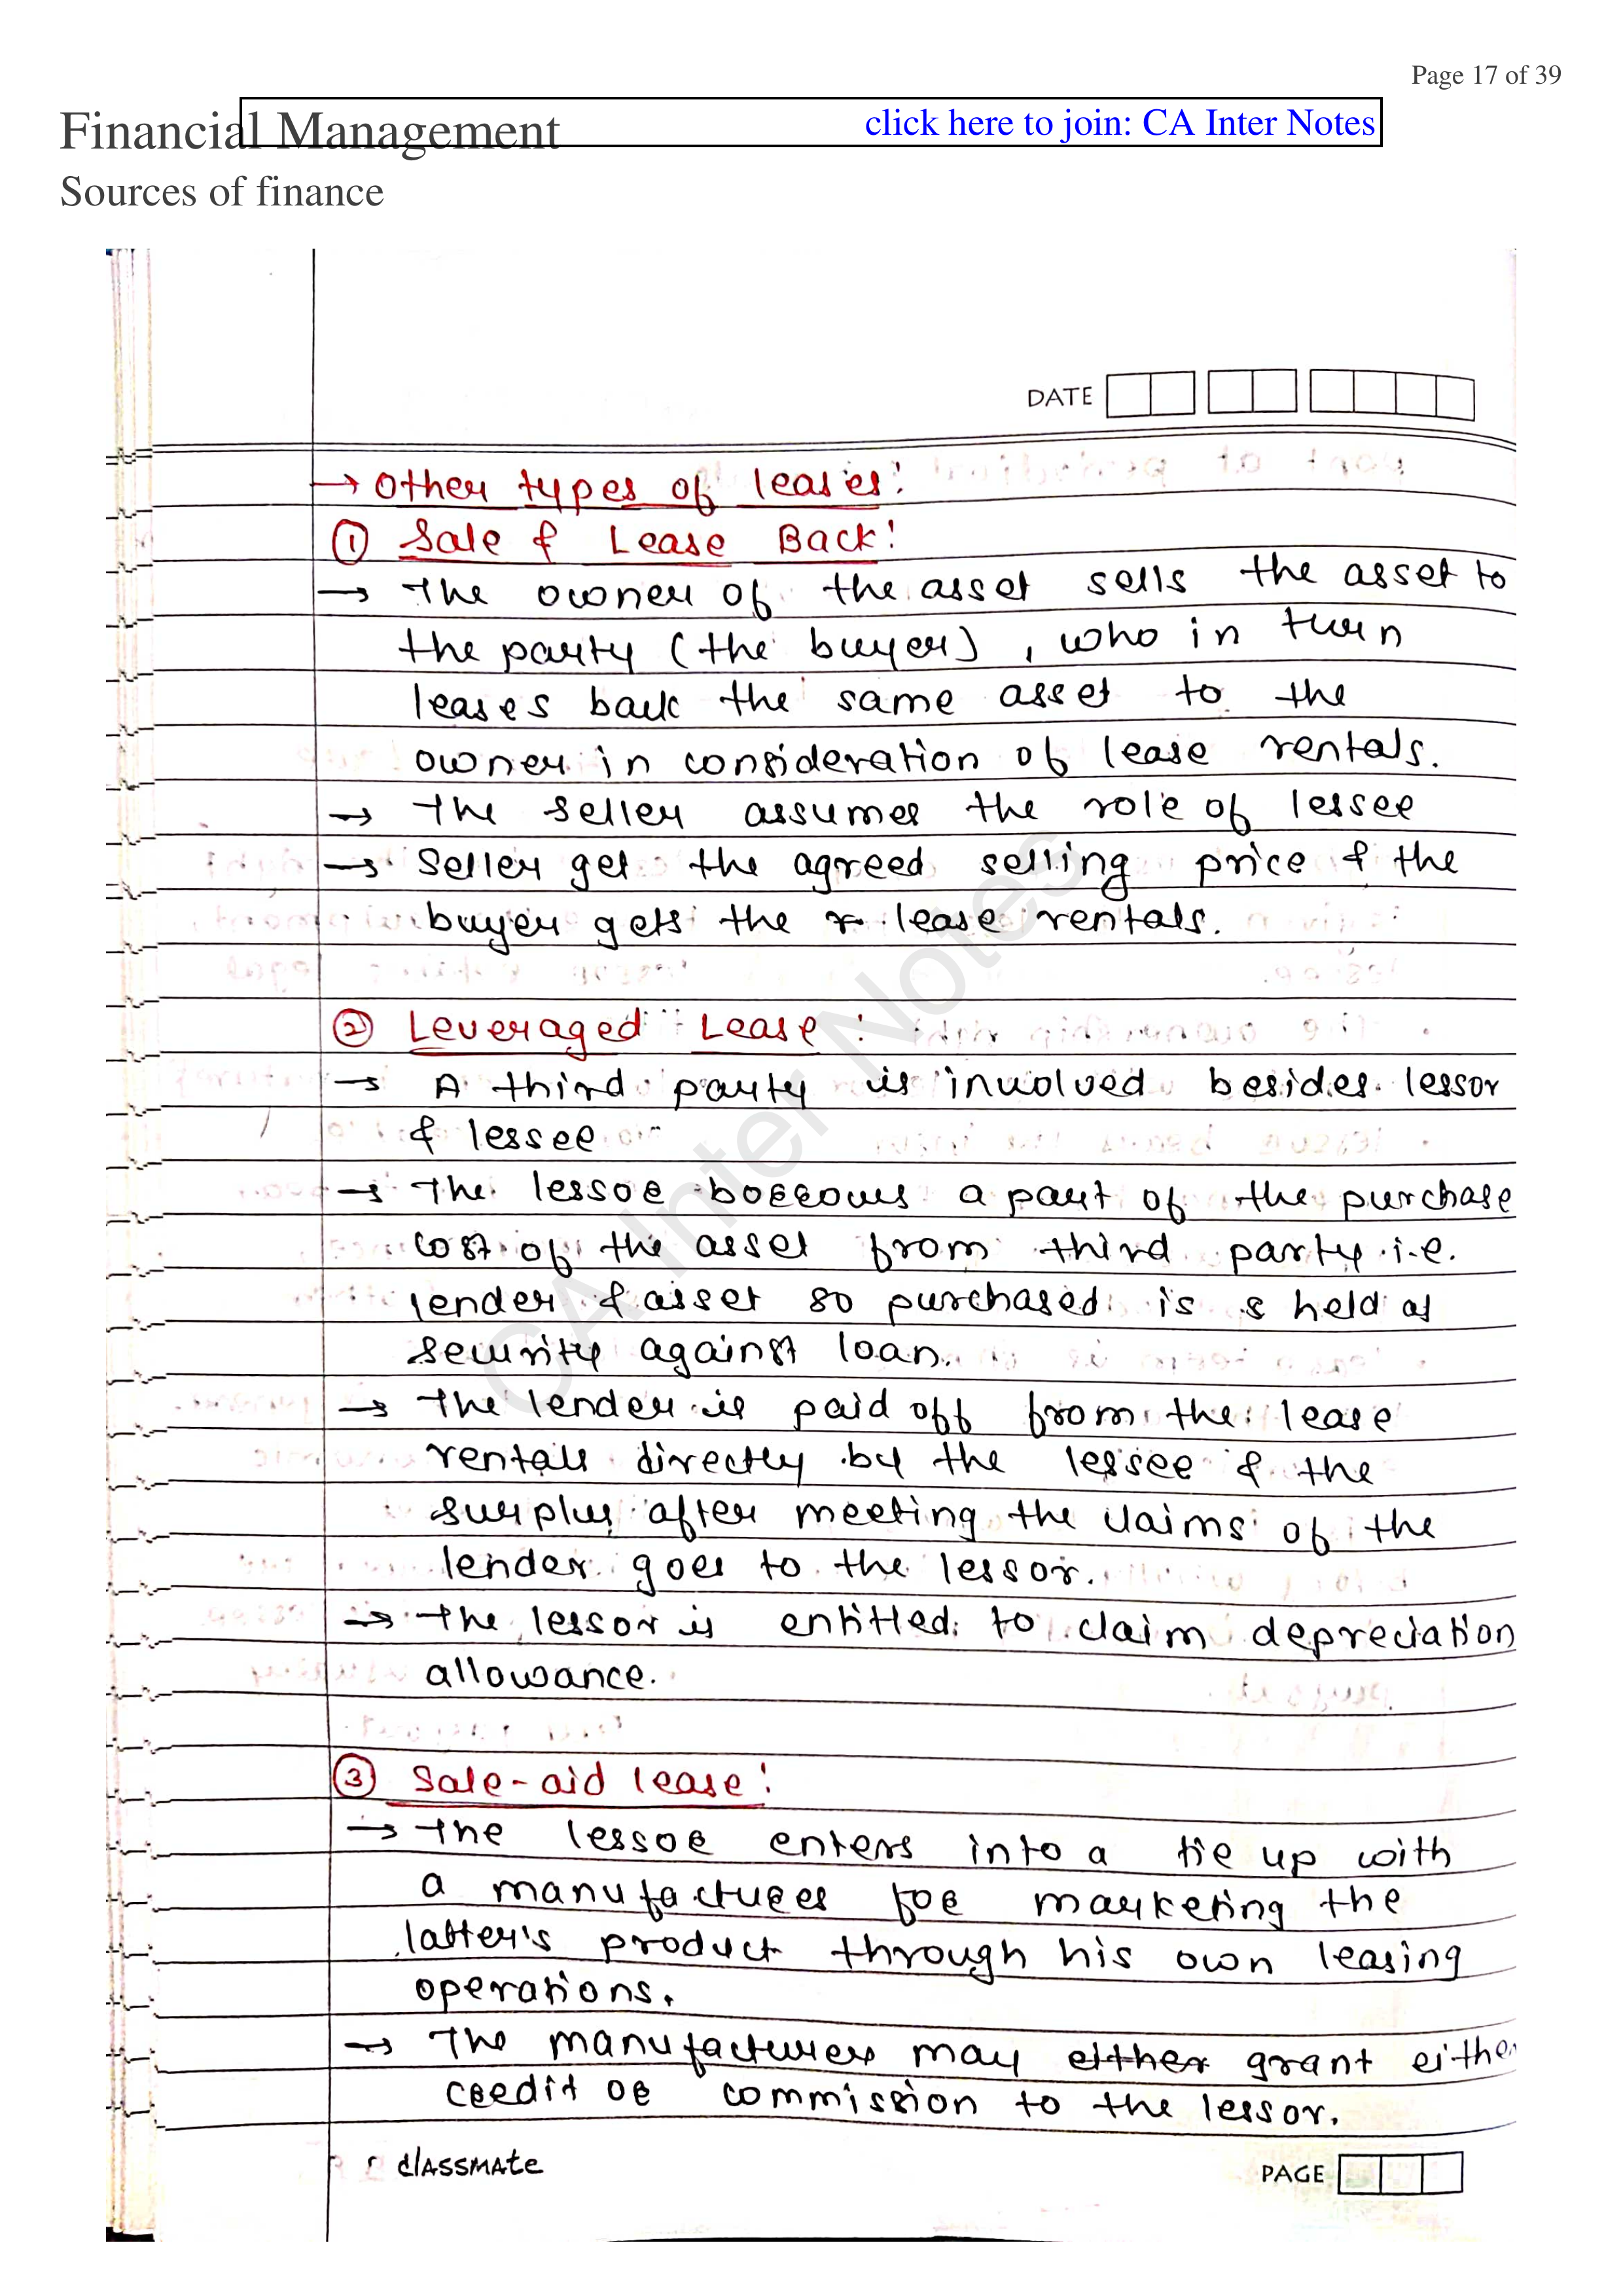 Page 17 of 39
Financial Management
click here to join: CA Inter Notes
Sources of finance
DATE
→ Other types of leases:
① Sale & Lease Back:
→ The owner of the asset sells the asset to
the party (the buyer), who in turn
leases back the same asset to the
owner in consideration of lease rentals.
→ The seller assumes the role of lessee
→ Seller get the agreed selling price & the
buyer gets the lease rentals.
② Leveraged Lease:
→ A third party is involved besides lessor
& lessee
→ The lessor borrows a part of the purchase
cost of the asset from third party i.e.
lender & asset so purchased is held as
security against loan.
→ The lender is paid off from the lease
rentals directly by the lessee & the
surplus after meeting the claims of the
lender goes to the lessor.
→ The lessor is entitled to claim depreciation
allowance.
③ Sale-aid lease:
→ The lessor enters into a tie up with
a manufacturer for marketing the
latter's product through his own leasing
operations.
→ The manufacturer may either grant either
credit or commission to the lessor.
classmate
PAGE
CA Inter Notes